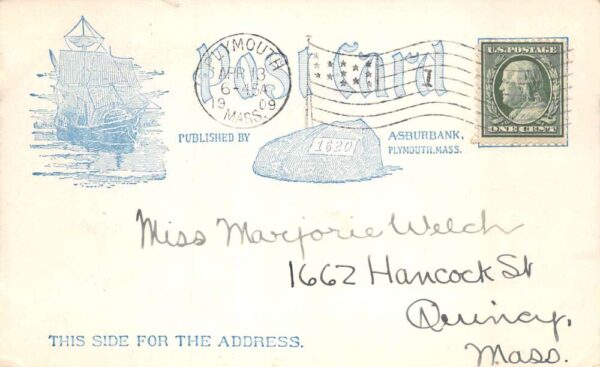 Post Card
PLYMOUTH
APR 13
6-45A
1909
MASS.
1
U.S. POSTAGE
ONE CENT
PUBLISHED BY
1620
A.S. BURBANK,
PLYMOUTH, MASS.
Miss Marjorie Welch
1662 Hancock St
Quincy,
Mass.
THIS SIDE FOR THE ADDRESS.